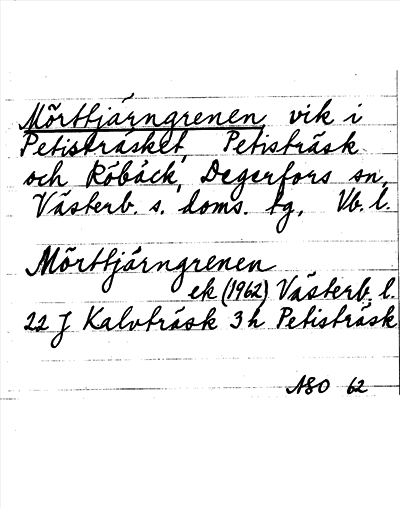 Mörttjärngrenen, vik i
Petisträsket, Petisträsk
och Röbäck, Degerfors sn,
Västerb. s. doms. tg, Vb. l.
Mörttjärngrenen
ek (1962) Västerb. l.
22 J Kalvträsk 3h Petisträsk
ASO 62